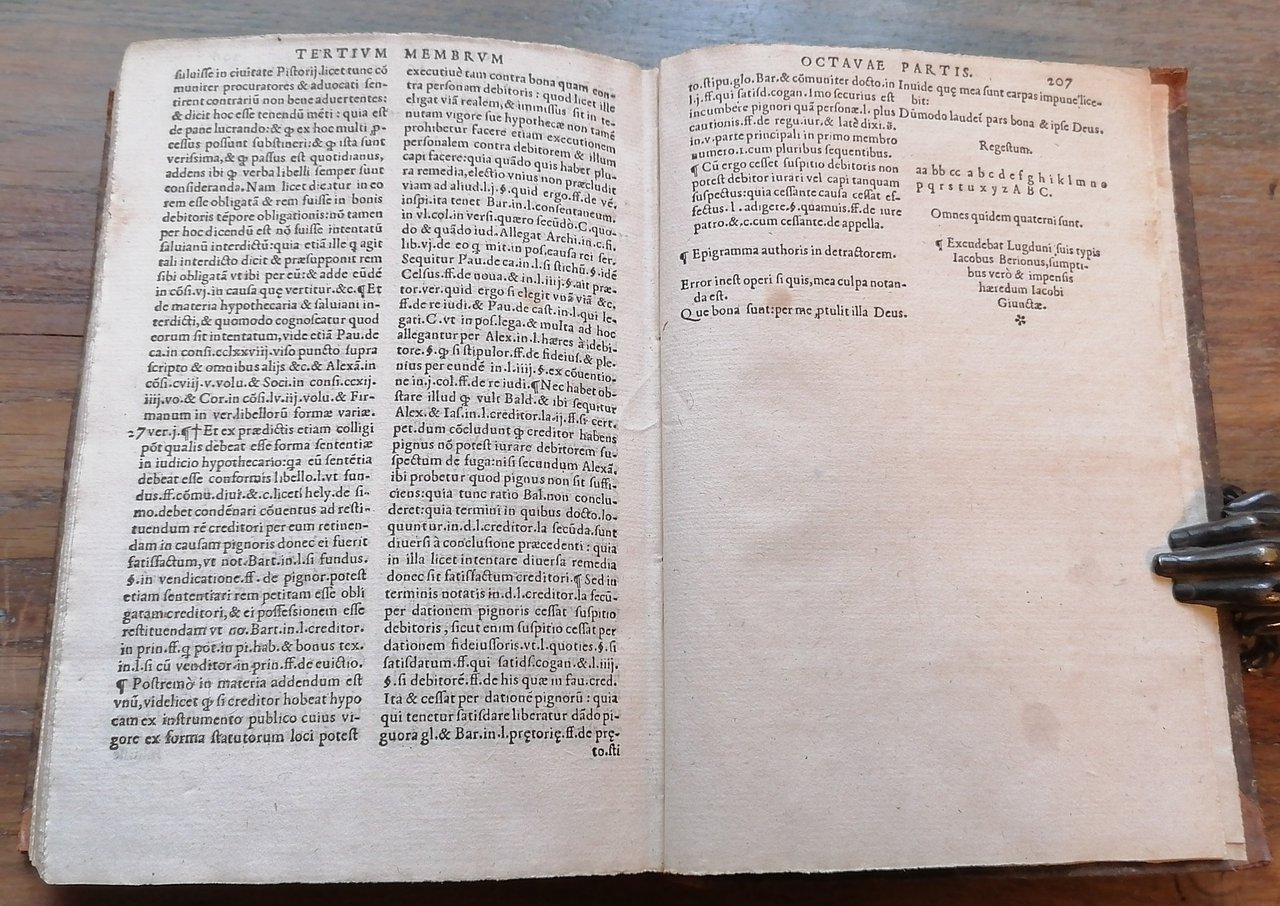 TERTIVM MEMBRVM
saluisse in ciuitate Pistorij.licet tunc cõ
muniter procuratores & aduocati sen-
tirent contrariũ non bene aduertentes:
& dicit hoc esse tenendũ mẽti : quia est
de pane lucrando: & ꝙ ex hoc multi ꝓ-
cessus possunt substineri: & ꝙ ista sunt
verissima, & ꝙ passus est quotidianus,
addens ibi ꝙ verba libelli semper sunt
consideranda. Nam licet dicatur in eo
rem esse obligatã & rem fuisse in bonis
debitoris tẽpore obligationis: nõ tamen
per hoc dicendũ est nõ fuisse intentatũ
saluianũ interdictũ: quia etiã ille q agit
tali interdicto dicit & præsupponit rem
sibi obligatã vt ibi per eũ: & adde eũdẽ
in cõsi.vj.in causa quę vertitur.&c.¶ Et
de materia hypothecaria & saluiani in-
terdicti, & quomodo cognoscatur quod
eorum sit intentatum, vide etiã Pau.de
ca.in consi.cclxxviij.viso puncto supra
scripto & omnibus alijs &c.& Alexã.in
cõsi.cviij.v.volu.& Soci.in consi.ccxij.
iiij.vo.& Cor.in cõsi.lv.iij.volu.& Fir-
manum in ver.libellorũ formæ variæ.
27 ver.j.¶† Et ex prædictis etiam colligi
põt qualis debeat esse forma sententiæ
in iudicio hypothecario:qa eũ sentẽtia
debeat esse conformis libello.l.vt fun-
dus.ff.cõmu.diui.&.c.liceti hely.de si-
mo.debet condẽnari cõuentus ad resti-
tuendum rẽ creditori per eum retinen-
dam in causam pignoris donec ei fuerit
satisfactum, vt not.Bart.in.l.si fundus.
§.in vendicatione.ff.de pignor.potest
etiam sententiari rem petitam esse obli
gatam creditori, & ei possessionem esse
restituendam vt no.Bart.in.l.creditor.
in prin.ff.q pot.in pi.hab.& bonus tex.
in.l.si cũ venditor.in prin.ff.de euictio.
¶ Postremò in materia addendum est
vnũ, videlicet ꝙ si creditor hobeat hypo
cam ex instrumento publico cuius vi-
gore ex forma statutorum loci potest
executiuè tam contra bona quam con-
tra personam debitoris : quod licet ille
eligat viã realem, & immissus sit in te-
nutam vigore suę hypothecæ non tamẽ
prohibetur facere etiam executionem
personalem contra debitorem & illum
capi facere: quia quãdo quis haber plu-
ra remedia, electio vnius non præcludit
viam ad aliud.l.j.§.quid ergo.ff.de vẽ.
inspi.ita tenet Bar.in.l.consentaneum.
in vl.col.in versi.quæro secũdò.C.quo-
do & quãdo iud.Allegat Archi.in.c.fi.
lib.vj.de eo q mit.in pos.causa rei ser.
Sequitur Pau.de ca.in.l.si stichũ.§.idẽ
Celsus.ff.de noua.& in.l.iiij.§.ait præ-
tor.ver.quid ergo si elegit vnã viã &c.
ff.de re iudi.& Pau.de cast.in.l.qui le-
gati.C.vt in pos.lega.& multa ad hoc
allegantur per Alex.in.l.hæres à debi-
tore.§.ꝙ si stipulor.ff.de fideius.& ple-
nius per eundẽ in.l.iiij.§.ex cõuentio-
ne in.j.col.ff.de re iudi.¶ Nec habet ob-
stare illud ꝙ vult Bald.& ibi sequitur
Alex.& Ias.in.l.creditor.la.ij.ff.si cert.
pet.dum cõcludunt ꝙ creditor habens
pignus nõ potest iurare debitorem su-
spectum de fuga: nisi secundum Alexã.
ibi probetur quod pignus non sit suffi-
ciens: quia tunc ratio Bal.non conclu-
deret: quia termini in quibus docto.lo-
quuntur.in.d.l.creditor.la secũda.sunt
diuersi à conclusione præcedenti : quia
in illa licet intentare diuersa remedia
donec sit satisfactum creditori.¶ Sed in
terminis notatis in.d.l.creditor.la secũ-
per dationem pignoris cessat suspitio
debitoris , sicut enim suspitio cessat per
dationem fideiussoris.vt.l.quoties.§.si
satisdatum.ff.qui satisd.cogan.&.l.iiij.
§.si debitorẽ.ff.de his quæ in fau.cred.
Ita & cessat per dationẽ pignorũ : quia
qui tenetur satisdare liberatur dãdo pi-
guora gl.& Bar.in.l.prętorię.ff.de prę-
to.sti
OCTAVAE PARTIS. 207
to.stipu.glo.Bar.& cõmuniter docto.in
l.j.ff.qui satisd.cogan.Imo securius est
incumbere pignori quã personæ.l. plus
cautionis.ff.de regu.iur.& latè dixi.s̃.
in.v.parte principali in primo membro
numero.1.cum pluribus sequentibus.
¶ Cũ ergo cesset suspitio debitoris non
potest debitor iurari vel capi tanquam
suspectus: quia cessante causa cessat ef-
fectus.l.adigere.§.quamuis.ff.de iure
patro.&.c.cum cessante.de appella.
¶ Epigramma authoris in detractorem.
Error inest operi si quis, mea culpa notan-
da est.
Que bona sunt: per me ꝓtulit illa Deus.
Inuide quę mea sunt carpas impune lice-
bit:
Dũmodo laudes pars bona & ipse Deus.
Regestum.
aa bb cc a b c d e f g h i k l m n o
p q r s t u x y z A B C.
Omnes quidem quaterni sunt.
¶ Excudebat Lugduni suis typis
Iacobus Berionus, sumpti-
bus verò & impensis
hæredum Iacobi
Giunctæ.